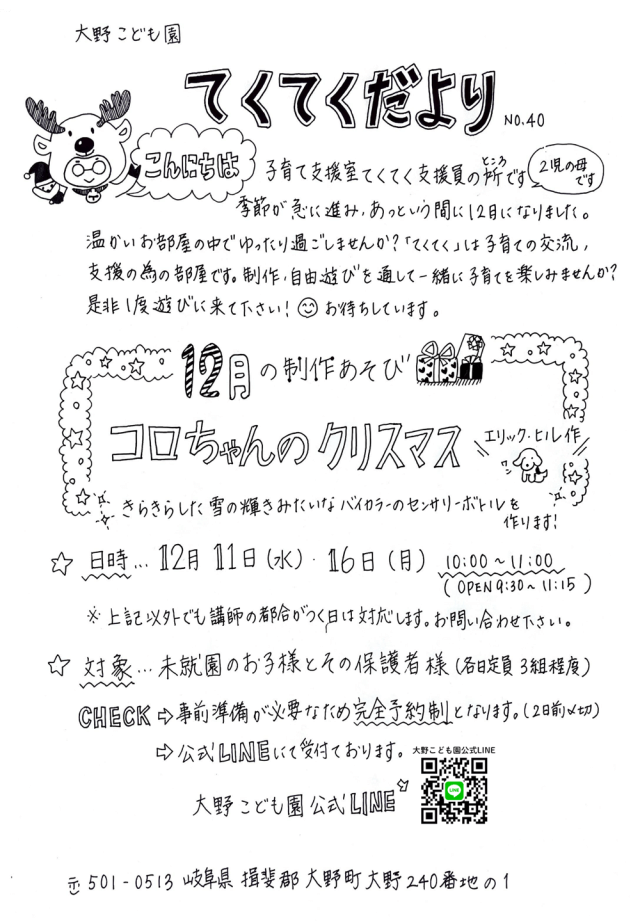 大野こども園
てくてくだより NO.40
こんにちは 子育て支援室てくてく支援員の所(ところ)です 2児の母です
季節が急に進み、あっという間に12月になりました。
温かいお部屋の中でゆったり過ごしませんか?「てくてく」は子育ての交流、
支援の為の部屋です。制作、自由遊びを通して一緒に子育てを楽しみませんか?
是非1度遊びに来て下さい!☺お待ちしています。
12月の制作あそび
コロちゃんのクリスマス エリック・ヒル作
ワン
きらきらした雪の輝きみたいなバイカラーのセンサリーボトルを
作ります!
☆日時…12月11日(水)・16日(月) 10:00~11:00
(OPEN 9:30~11:15)
※上記以外でも講師の都合がつく日は対応します。お問い合わせ下さい。
☆対象…未就園のお子様とその保護者様(各日定員3組程度)
CHECK⇨事前準備が必要なため完全予約制となります。(2日前〆切)
⇨公式LINEにて受付ております。
大野こども園公式LINE
大野こども園公式LINE
LINE
〒501-0513 岐阜県 揖斐郡 大野町大野240番地の1